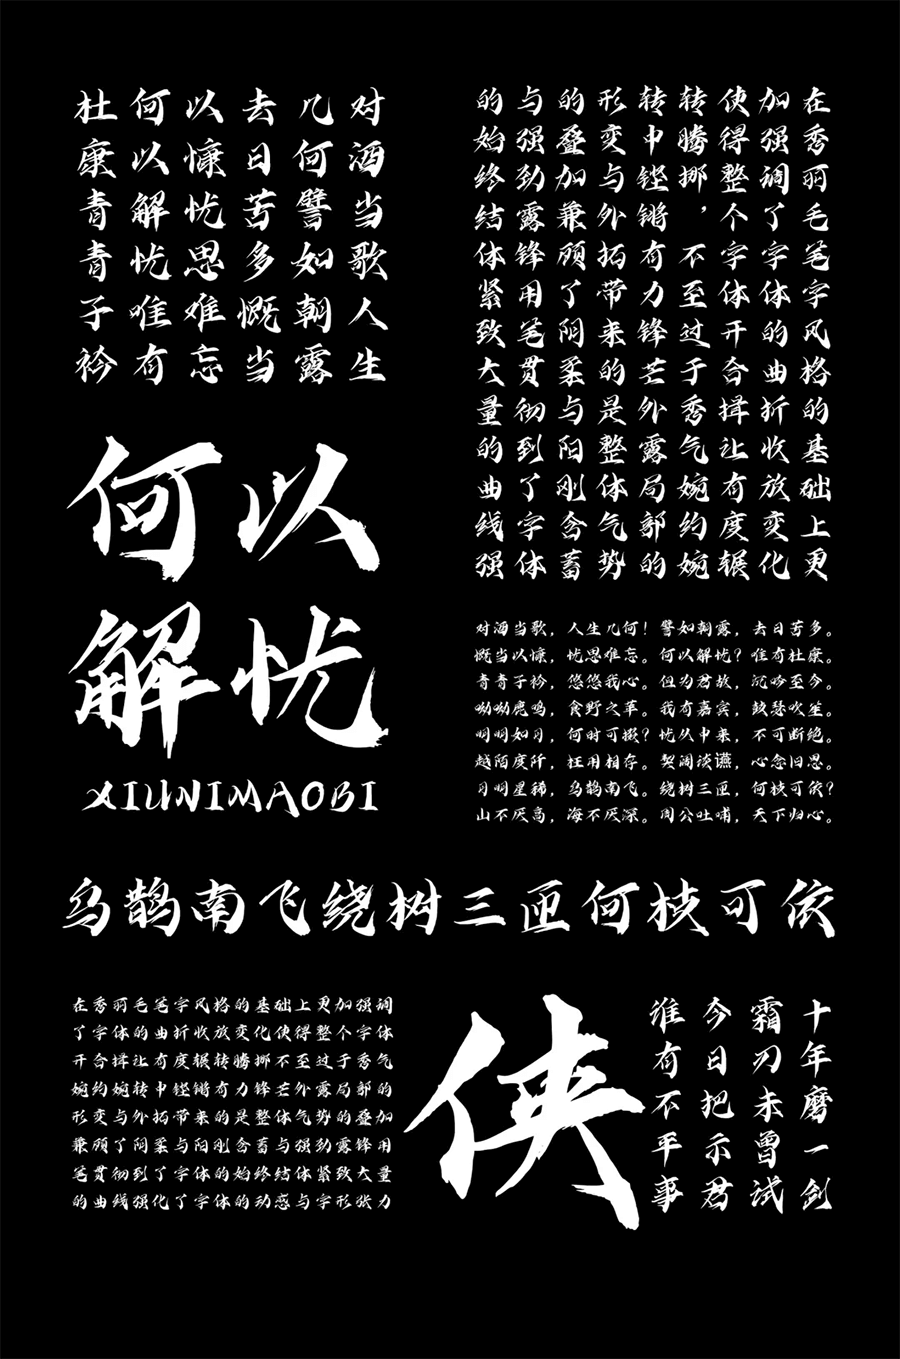 对酒当歌人生
几何譬如朝露
去日苦多慨当
以慷忧思难忘
何以解忧唯有
杜康青青子衿
在秀羽毛笔字风格的基础上更
加强调了字体的曲折收放变化
使得整个字体开合揖让有度辗
转腾挪，不至过于秀气婉约婉
转中铿锵有力锋芒外露局部的
形变与外拓带来的是整体气势
的叠加兼顾了阴柔与阳刚含蓄
与强劲露锋用笔贯彻到了字体
的始终结体紧致大量的曲线强
何以
解忧
XIUNIMAOBI
对酒当歌，人生几何！譬如朝露，去日苦多。
慨当以慷，忧思难忘。何以解忧？唯有杜康。
青青子衿，悠悠我心。但为君故，沉吟至今。
呦呦鹿鸣，食野之苹。我有嘉宾，鼓瑟吹笙。
明明如月，何时可掇？忧从中来，不可断绝。
越陌度阡，枉用相存。契阔谈䜩，心念旧恩。
月明星稀，乌鹊南飞。绕树三匝，何枝可依？
山不厌高，海不厌深。周公吐哺，天下归心。
乌鹊南飞绕树三匝何枝可依
在秀羽毛笔字风格的基础上更加强调
了字体的曲折收放变化使得整个字体
开合揖让有度辗转腾挪不至过于秀气
婉约婉转中铿锵有力锋芒外露局部的
形变与外拓带来的是整体气势的叠加
兼顾了阴柔与阳刚含蓄与强劲露锋用
笔贯彻到了字体的始终结体紧致大量
的曲线强化了字体的动感与字形张力
侠
十年磨一剑
霜刃未曾试
今日把示君
谁有不平事